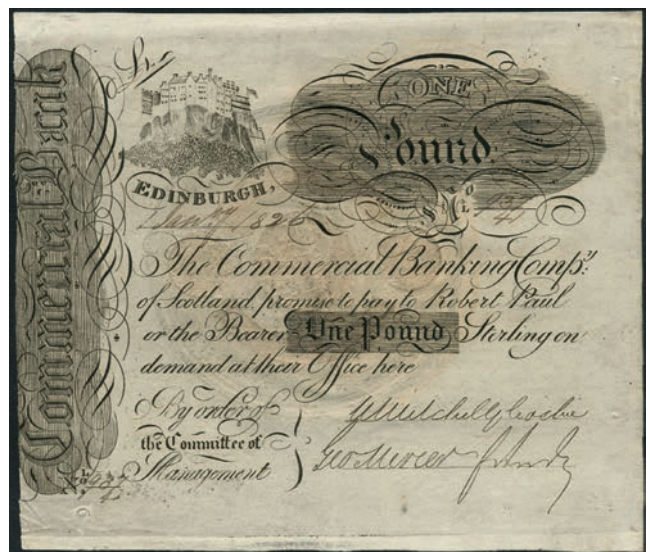 Commercial Bank
ONE
Pound
EDINBURGH,
The Commercial Banking Compy:
of Scotland, promise to pay to Robert Paul
or the Bearer One Pound Sterling on
demand at their Office here
By order of
the Committee of
Management
Geo Mercer